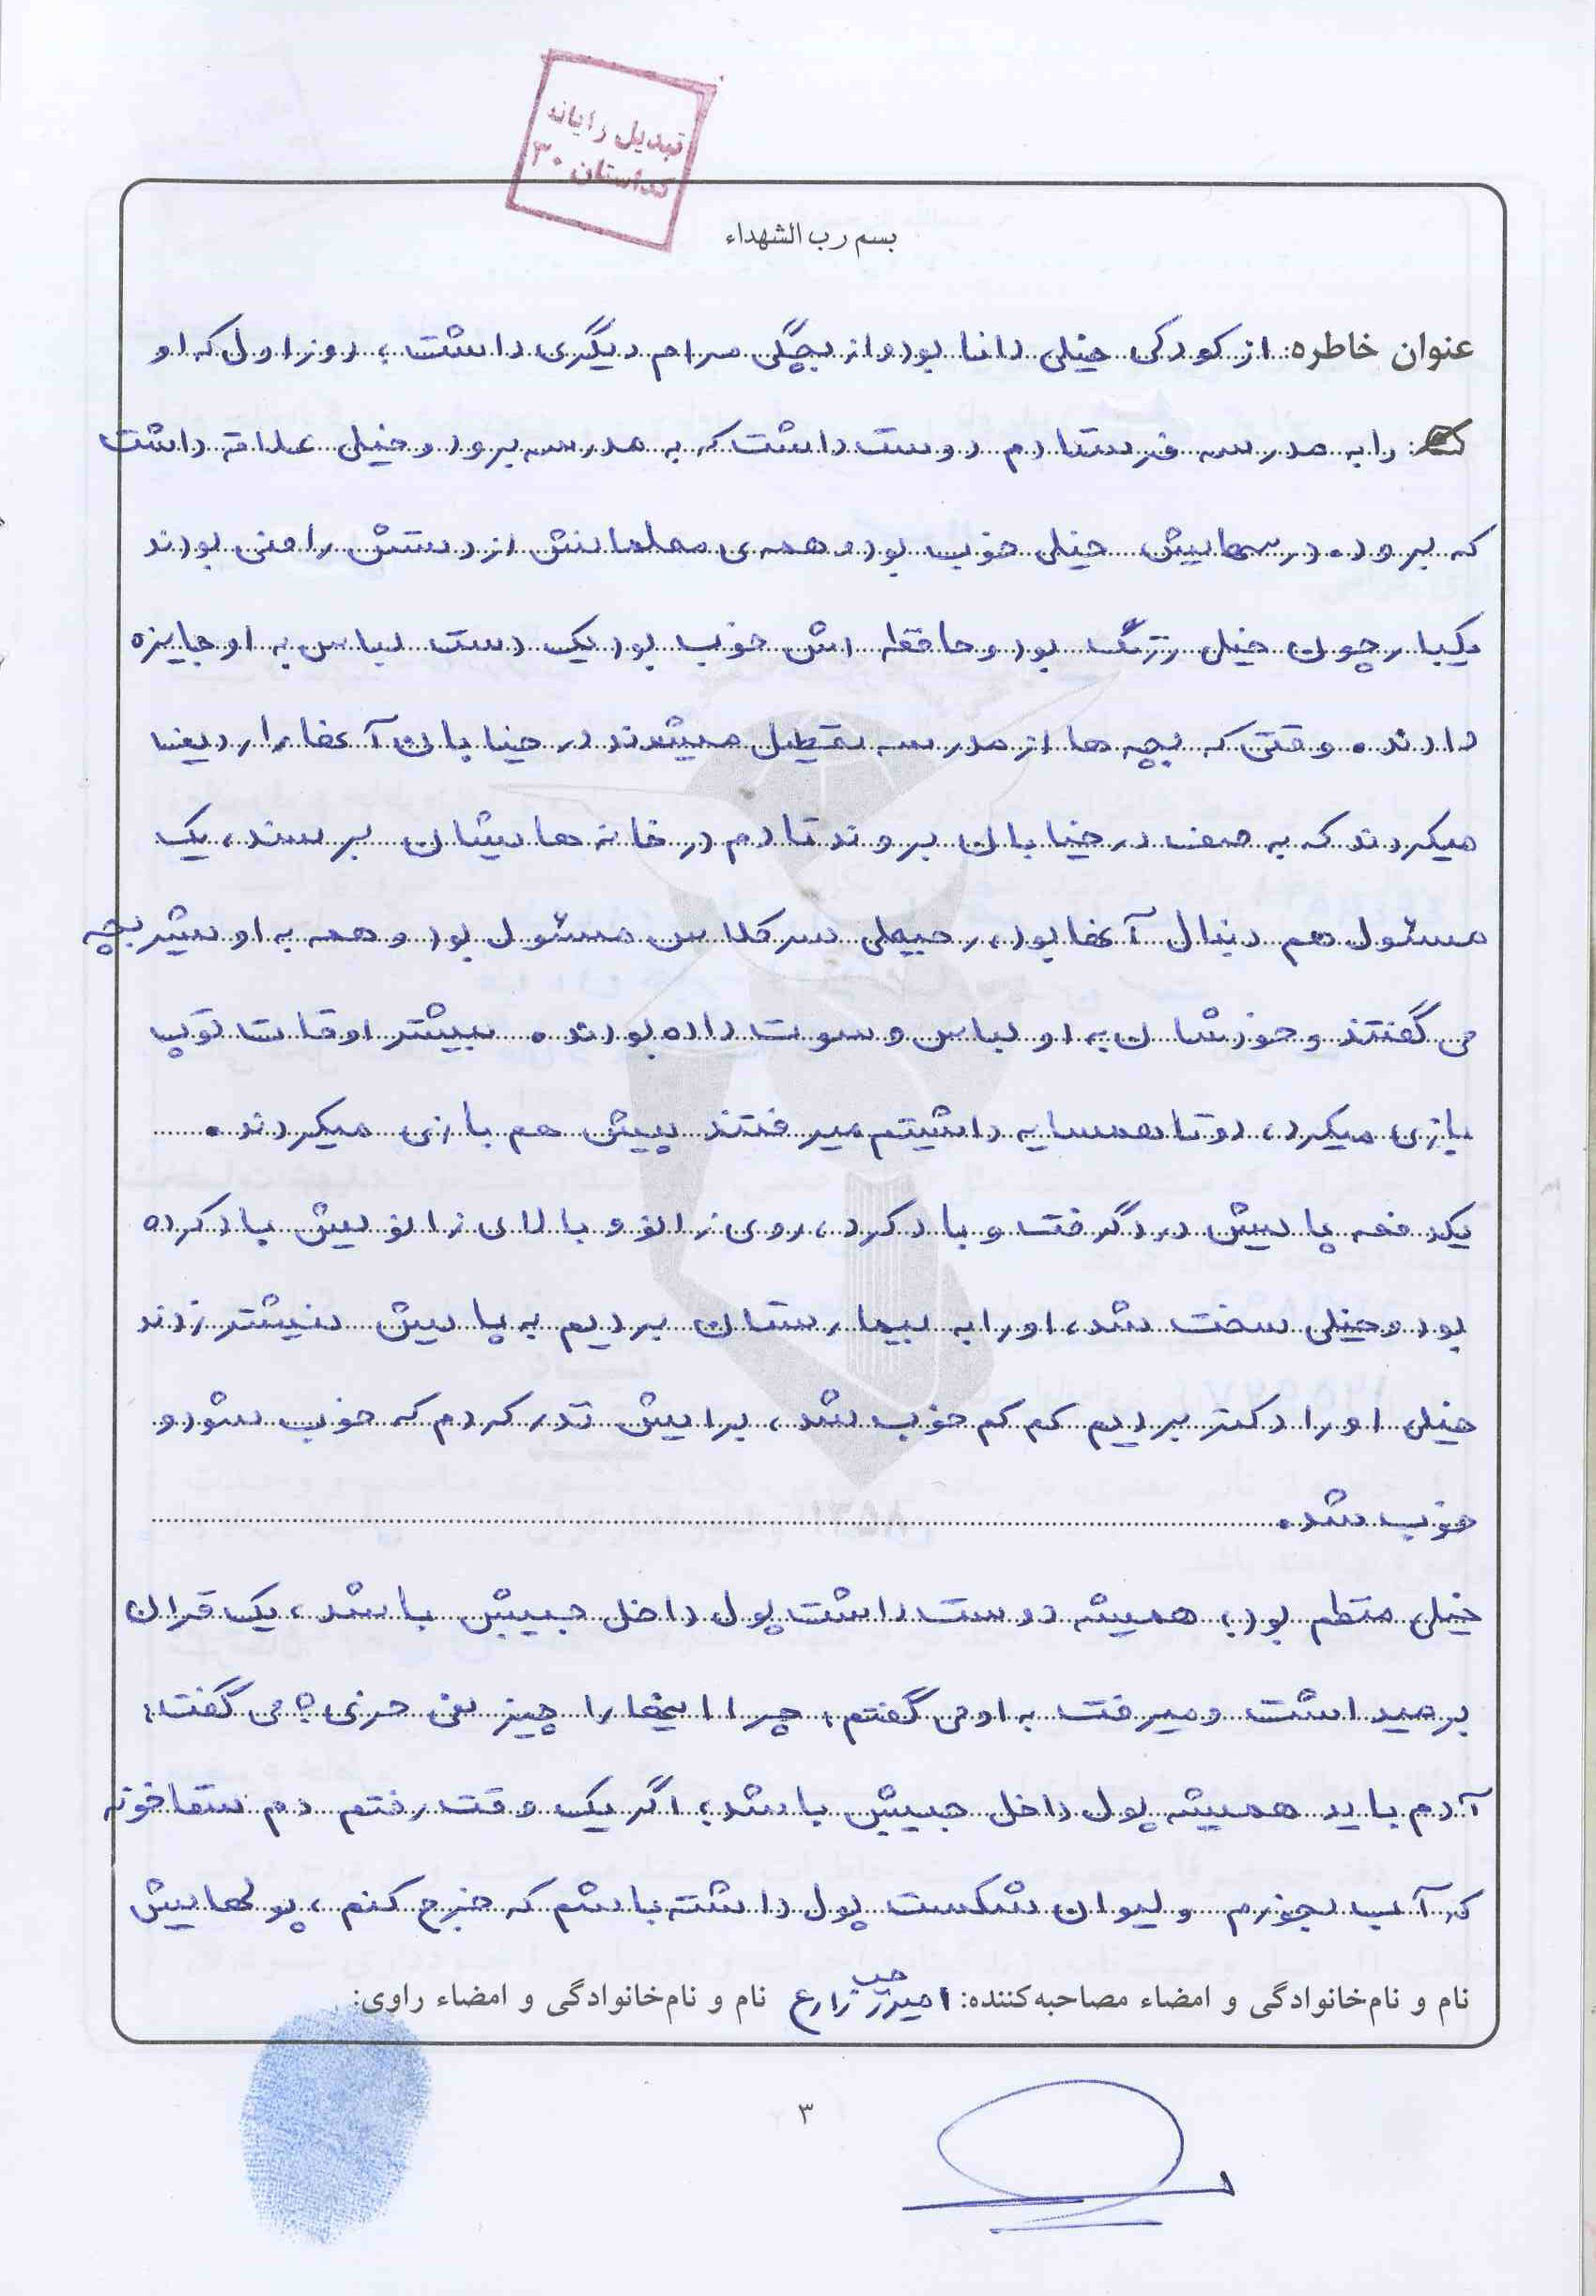 تبدیل رایانه
کداستان ۳۰
بسم رب الشهداء
عنوان خاطره: از کودکی خیلی دانا بود و از بچگی مرام دیگری داشت؛ روز اول که او
را به مدرسه فرستادم دوست داشت که به مدرسه برود و خیلی علاقه داشت
که برود. درسهایش خیلی خوب بود و همه‌ی معلمانش از دستش راضی بودند
یکبار چون خیلی زرنگ بود و حافظه اش خوب بود یک دست لباس به او جایزه
دادند. وقتی که بچه ها از مدرسه تعطیل میشدند در خیابان آنها را ردیف
میکردند که به صف در خیابان بروند تا دم در خانه هایشان برسند، یک
مسئول هم دنبال آنها بود، رجبعلی سر کلاس مسئول بود و همه به او شیر بچه
می گفتند و خودشان به او لباس و سوت داده بودند. بیشتر اوقات توپ
بازی میکرد، دو تا همسایه داشتیم میرفتند پیش هم بازی میکردند.
یکدفعه پایش درد گرفت و باد کرد، روی زانو و بالای زانویش باد کرده
بود و خیلی سخت شد، او را به بیمارستان بردیم به پایش نیشتر زدند
خیلی او را دکتر بردیم کم کم خوب شد، برایش نذر کردم که خوب شود و
خوب شد.
خیلی منظم بود؛ همیشه دوست داشت پول داخل جیبش باشد، یک قران
برمیداشت و میرفت به او می گفتم: چرا اینها را چیز نمی خری؟ می گفت:
آدم باید همیشه پول داخل جیبش باشد؛ اگر یک وقت رفتم دم سقاخونه
که آب بخورم و لیوان شکست پول داشته باشم که خرج کنم، پولهایش
نام و نام‌خانوادگی و امضاء مصاحبه‌کننده: زارع نام و نام‌خانوادگی و امضاء راوی:
۳